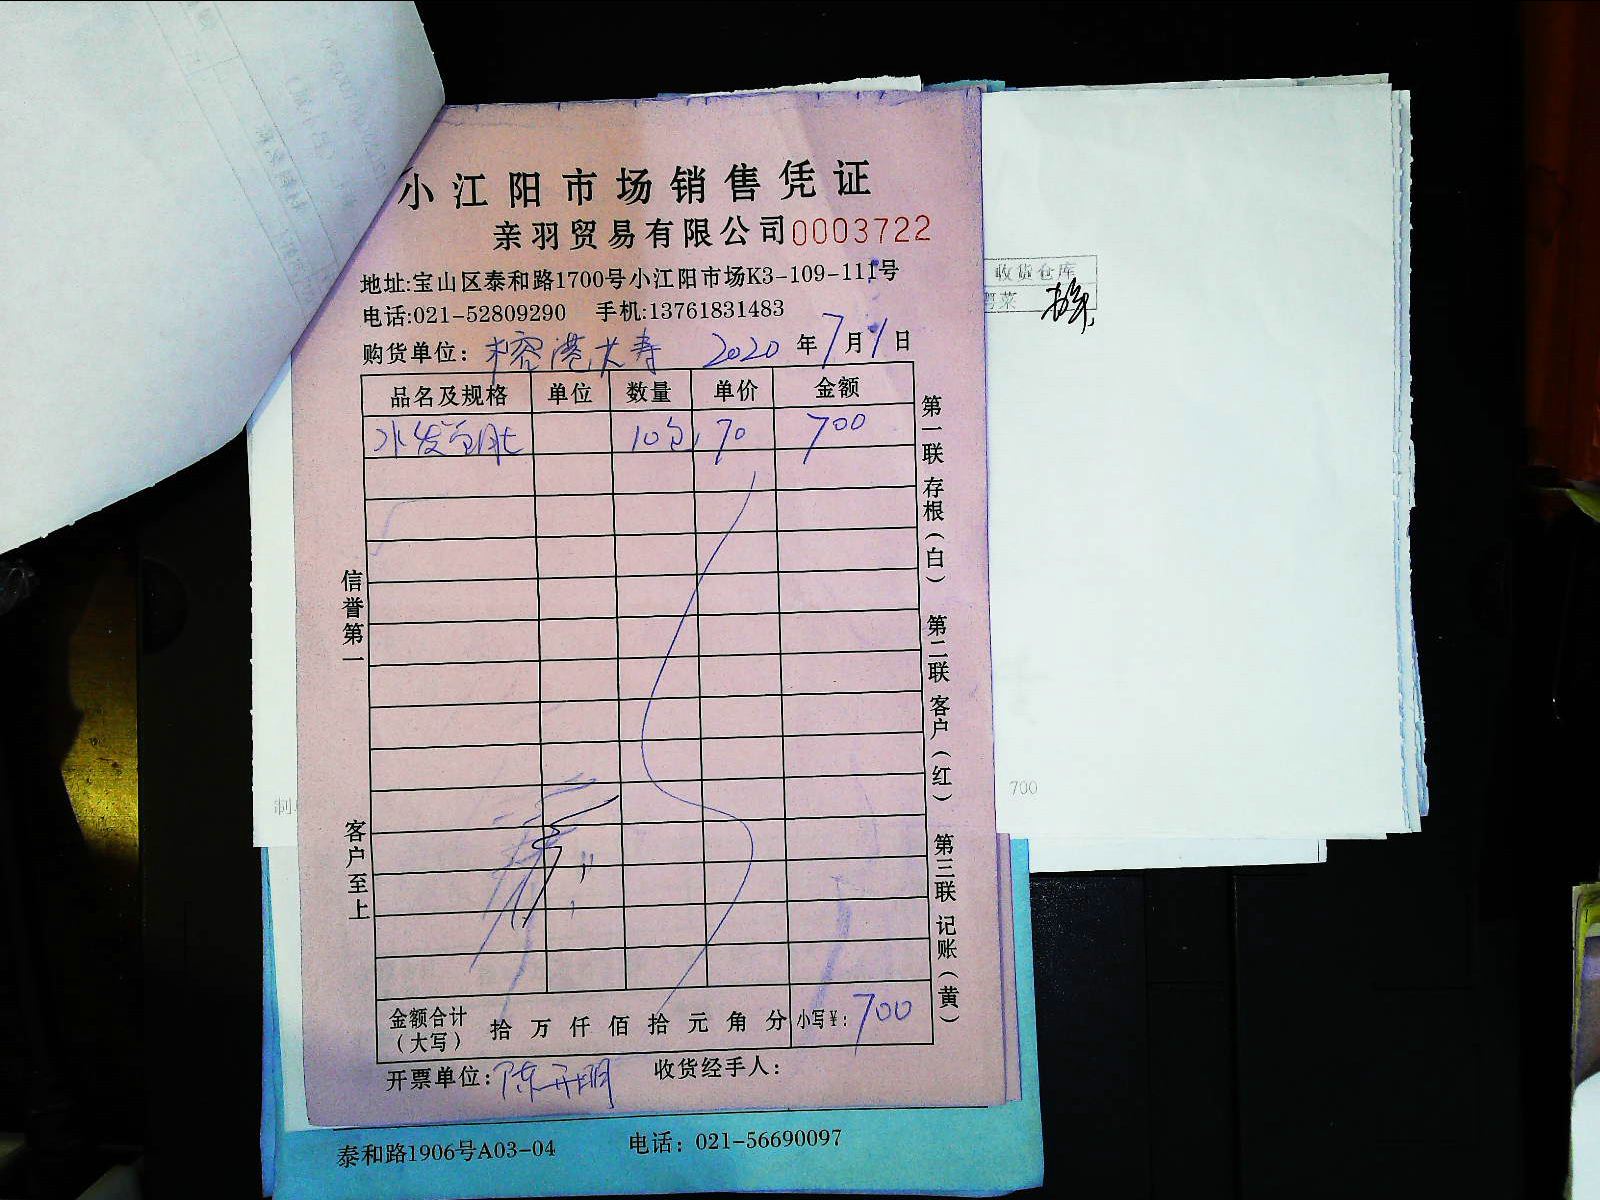 小江阳市场销售凭证
亲羽贸易有限公司0003722
地址:宝山区泰和路1700号小江阳市场K3-109-111号
电话:021-52809290 手机:13761831483
购货单位: 榕港大寿 2020年7月1日
品名及规格 单位 数量 单价 金额
水发百肚 10包 70 700
信誉第一
客户至上
第一联 存根(白) 第二联 客户(红) 第三联 记账(黄)
金额合计(大写) 拾 万 仟 佰 拾 元 角 分 小写¥: 700
开票单位: 陈开明 收货经手人:
泰和路1906号A03-04 电话: 021-56690097
收货仓库
700